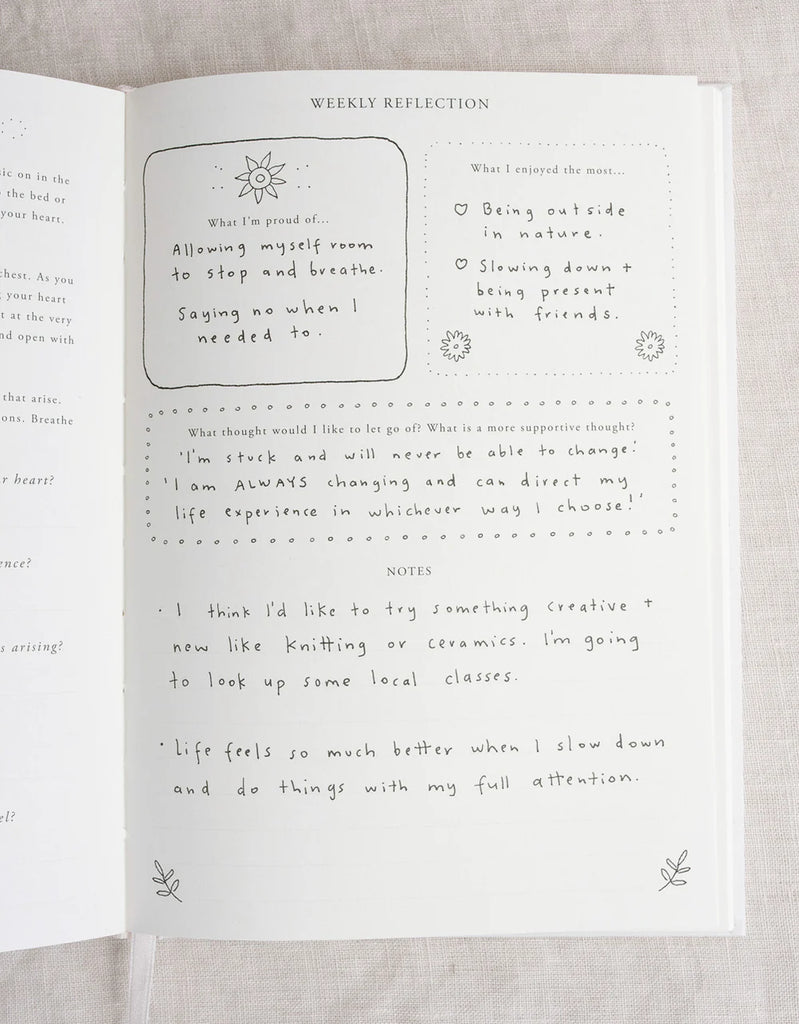 sic on in the
the bed or
your heart.
chest. As you
your heart
t at the very
nd open with
that arise.
ons. Breathe
r heart?
ence?
s arising?
el?
WEEKLY REFLECTION
What I'm proud of...
Allowing myself room
to stop and breathe.
Saying no when I
needed to.
What I enjoyed the most...
♡ Being outside
in nature.
♡ Slowing down +
being present
with friends.
What thought would I like to let go of? What is a more supportive thought?
'I'm stuck and will never be able to change.'
'I am ALWAYS changing and can direct my
life experience in whichever way I choose!'
NOTES
· I think I'd like to try something creative +
new like knitting or ceramics. I'm going
to look up some local classes.
· Life feels so much better when I slow down
and do things with my full attention.